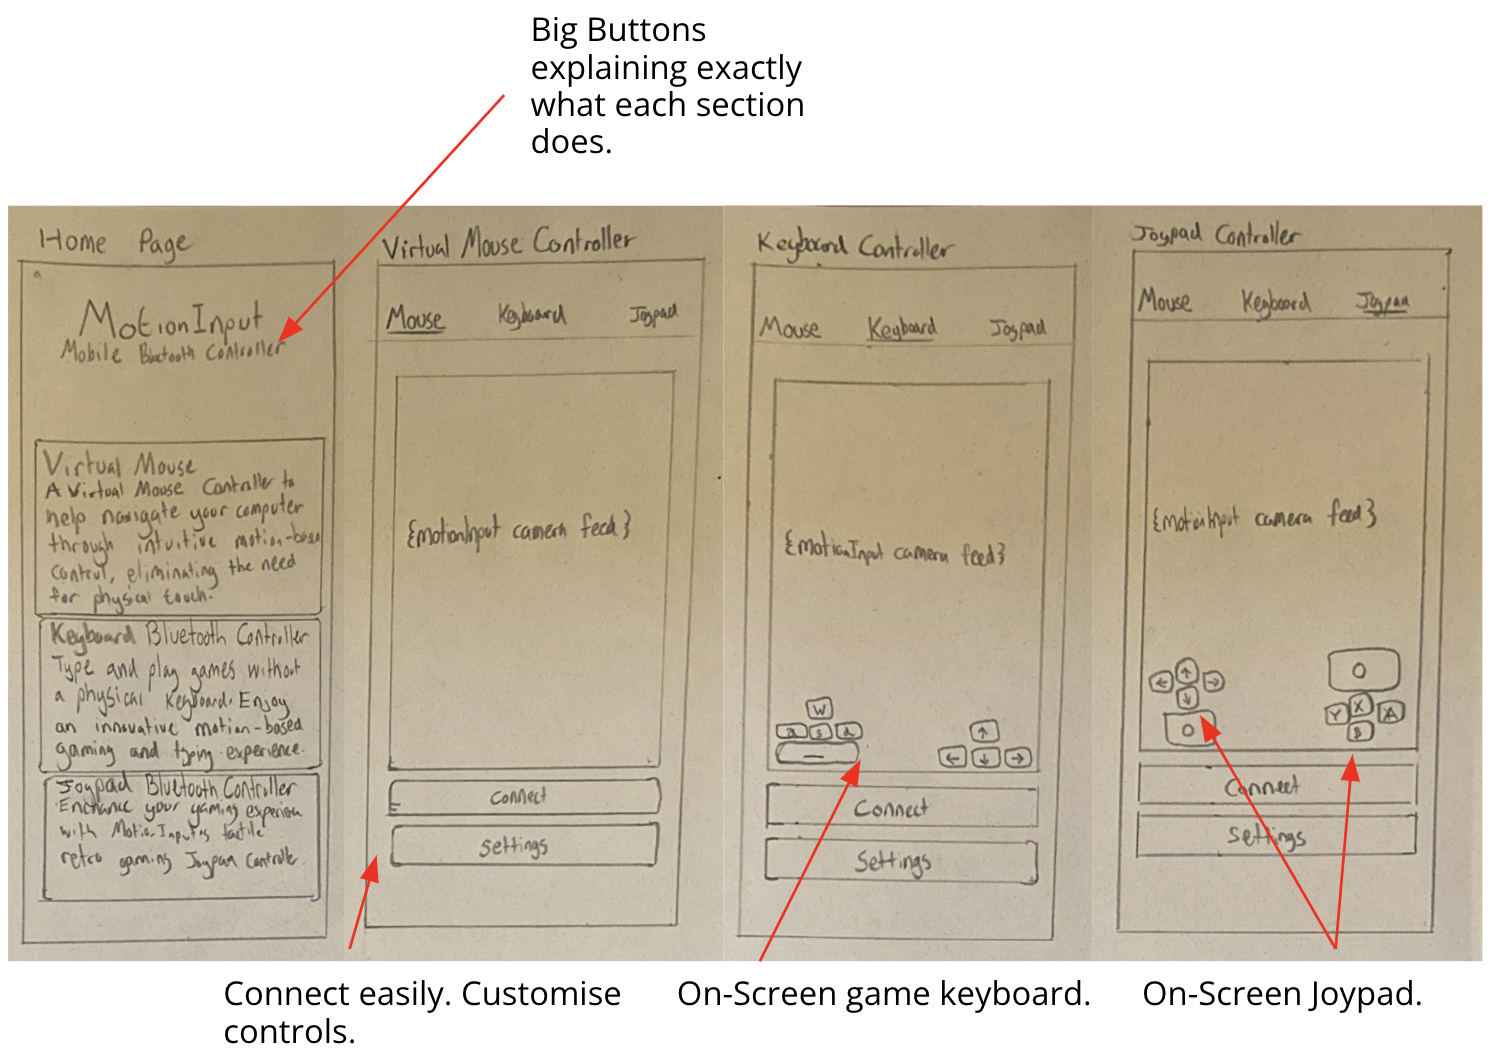 Big Buttons
explaining exactly
what each section
does.
Home Page
MotionInput
Mobile Bluetooth Controller
Virtual Mouse
A Virtual Mouse Controller to
help navigate your computer
through intuitive motion-base
control, eliminating the need
for physical touch.
Keyboard Bluetooth Controller
Type and play games without
a physical keyboard. Enjoy
an innovative motion-based
gaming and typing experience.
Joypad Bluetooth Controller
Enchance your gaming experien
with MotionInput's tactile
retro gaming Joypad Controller.
Virtual Mouse Controller
Mouse Keyboard Joypad
{MotionInput camera feed}
Connect
Settings
Keyboard Controller
Mouse Keyboard Joypad
{MotionInput camera feed}
W
a s d
↑
← ↓ →
Connect
Settings
Joypad Controller
Mouse Keyboard Joypad
{MotionInput camera feed}
↑
← →
↓
O
O
X
Y A
B
Connect
Settings
Connect easily. Customise
controls.
On-Screen game keyboard.
On-Screen Joypad.